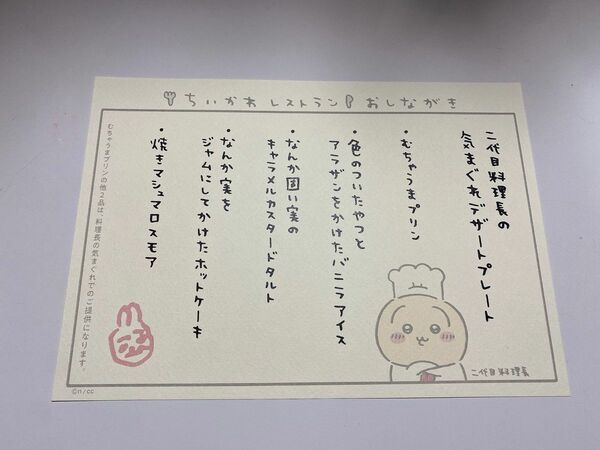 ちいかわレストラン おしながき
二代目料理長の
気まぐれデザートプレート
・むちゃうまプリン
・色のついたやつと
アラザンをかけたバニラアイス
・なんか固い実の
キャラメルカスタードタルト
・なんか実を
ジャムにしてかけたホットケーキ
・焼きマシュマロスモア
むちゃうまプリンの他2品は、料理長の気まぐれでのご提供になります。
二代目料理長
©n/cc